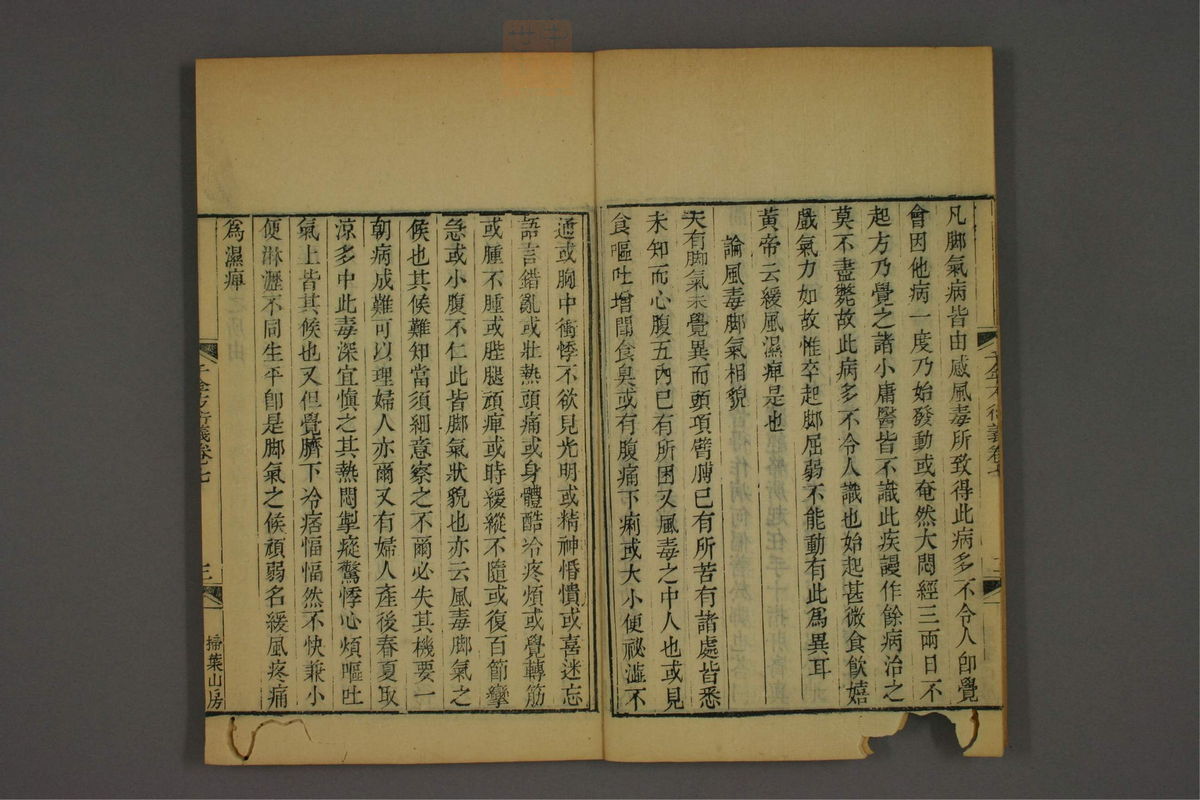 凡脚氣病皆由感風毒所致得此病多不令人即覺
會因他病一度乃始發動或奄然大悶經三兩日不
起方乃覺之諸小庸醫皆不識此疾謾作餘病治之
莫不盡斃故此病多不令人識也始起甚微食飲嬉
戲氣力如故惟卒起脚屈弱不能動有此爲異耳
黃帝云緩風濕痺是也
論風毒脚氣相貌
夫有脚氣未覺異而頭項臂膊已有所苦有諸處皆悉
未知而心腹五內已有所困又風毒之中人也或見
食嘔吐增聞食臭或有腹痛下痢或大小便祕澁不
通或胸中衝悸不欲見光明或精神惛憒或喜迷忘
語言錯亂或壯熱頭痛或身體酷冷疼煩或覺轉筋
或腫不腫或䏶腿頑痺或時緩縱不隨或復百節攣
急或小腹不仁此皆脚氣狀貌也亦云風毒脚氣之
候也其候難知當須細意察之不爾必失其機要一
朝病成難可以理婦人亦爾又有婦人產後春夏取
涼多中此毒深宜慎之其熱悶掣瘲驚悸心煩嘔吐
氣上皆其候也又但覺臍下冷痞愊愊然不快兼小
便淋瀝不同生平卽是脚氣之候頑弱名緩風疼痛
爲濕痺
千金方衍義卷七
三
掃葉山房